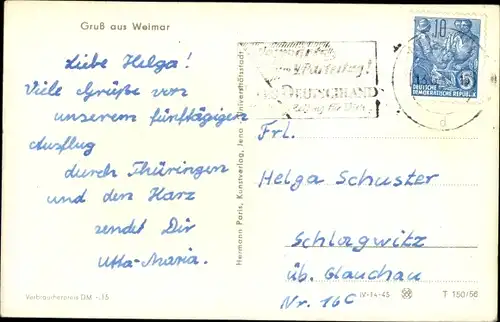 Gruß aus Weimar
Liebe Helga!
Viele Grüße von
unserem fünftägigen
Ausflug
durch Thüringen
und den Harz
sendet Dir
Utta-Maria.
Verbraucherpreis DM -.15
Hermann Paris, Kunstverlag, Jena (Universitätsstadt)
DEUTSCHLAND
10
15
DEUTSCHE
DEMOKRATISCHE REPUBLIK
d
Frl.
Helga Schuster
Schlagwitz
üb. Glauchau
Nr. 16C
IV-14-45
T 150/56